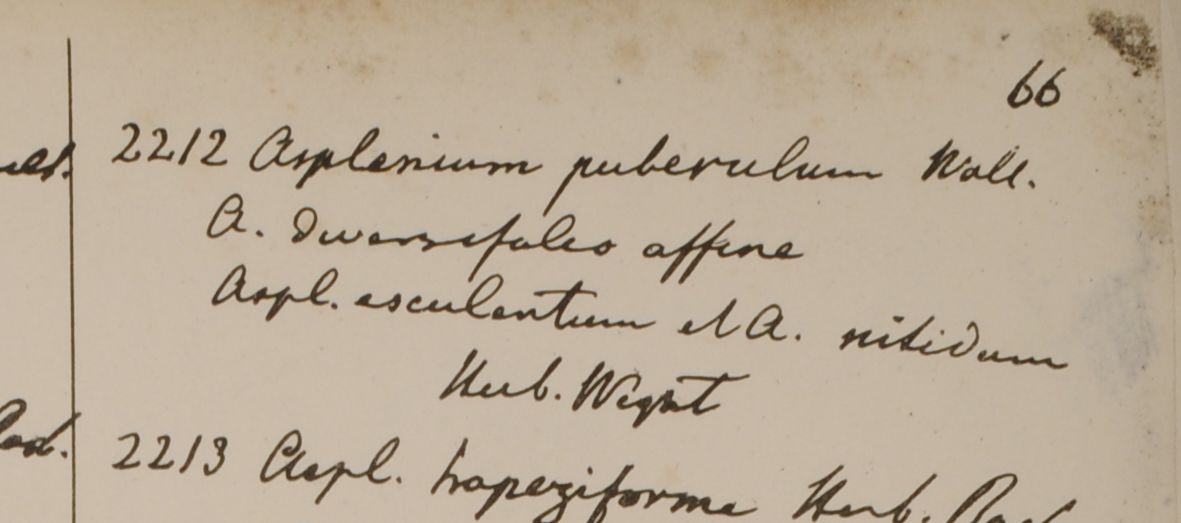 66
2212 Asplenium puberulum Wall.
A. diversifolio affine
Aspl. esculentum et A. nitidum
Herb. Wight
2213 Aspl. trapeziforme Herb.